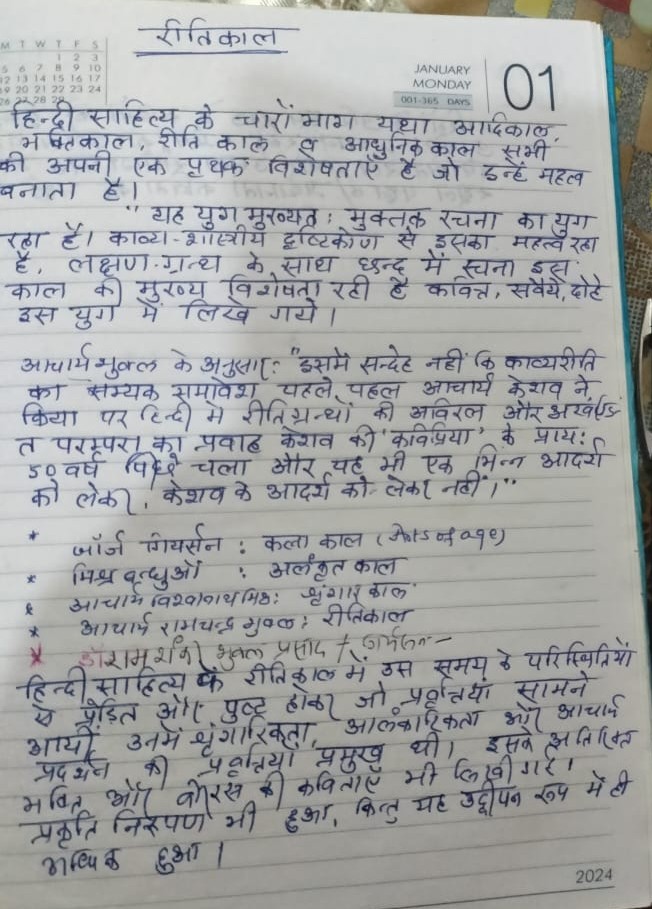 रीतिकाल
M T W T F S
1 2 3
5 6 7 8 9 10
12 13 14 15 16 17
19 20 21 22 23 24
26 27 28 29
JANUARY
MONDAY
001-365 DAYS
01
हिन्दी साहित्य के चारों भाग यथा आदिकाल,
भक्तिकाल, रीति काल व आधुनिक काल सभी
की अपनी एक पृथक विशेषताएँ है जो इन्हे महत्व
बनाता है।
" यह युग मुख्यत: मुक्तक रचना का युग
रहा है। काव्य-शास्त्रीय दृष्टिकोण से इसका महत्व रहा
है, लक्षण-ग्रन्थ के साथ छन्द में रचना इस
काल की मुख्य विशेषता रही है कवित्त, सवैये, दोहे
इस युग में लिखे गये।
आचार्य शुक्ल के अनुसार: "इसमें सन्देह नहीं कि काव्यरीति
का सम्यक समावेश पहले पहल आचार्य केशव ने
किया पर हिन्दी में रीतिग्रन्थों की अविरल और अखण्डि
त परम्परा का प्रवाह केशव की 'कविप्रिया' के प्राय:
50 वर्ष पिछे चला और यह भी एक भिन्न आदर्श
को लेकर, केशव के आदर्श को लेकर नहीं।"
* जॉर्ज ग्रियर्सन : कला काल
* मिश्र बन्धुओं : अलंकृत काल
* आचार्य विश्वनाथ मिश्र: शृंगार काल
* आचार्य रामचन्द्र शुक्ल: रीतिकाल
* डॉ रामशंकर शुक्ल प्रसाद
हिन्दी साहित्य के रीतिकाल में उस समय के परिस्थितियों
से प्रेडित और पुष्ट होकर जो प्रवृत्तियाँ सामने
आयीं उनमें शृंगारिकता, आलंकारिकता और आचार्य
प्रदर्शन की प्रवृत्तियाँ प्रमुख थी। इसके अतिरिक्त
भक्ति और वीररस की कविताएँ भी लिखी गई।
प्रकृति निरुपण भी हुआ, किन्तु यह उद्दीपन रूप में ही
अधिक हुआ।
2024